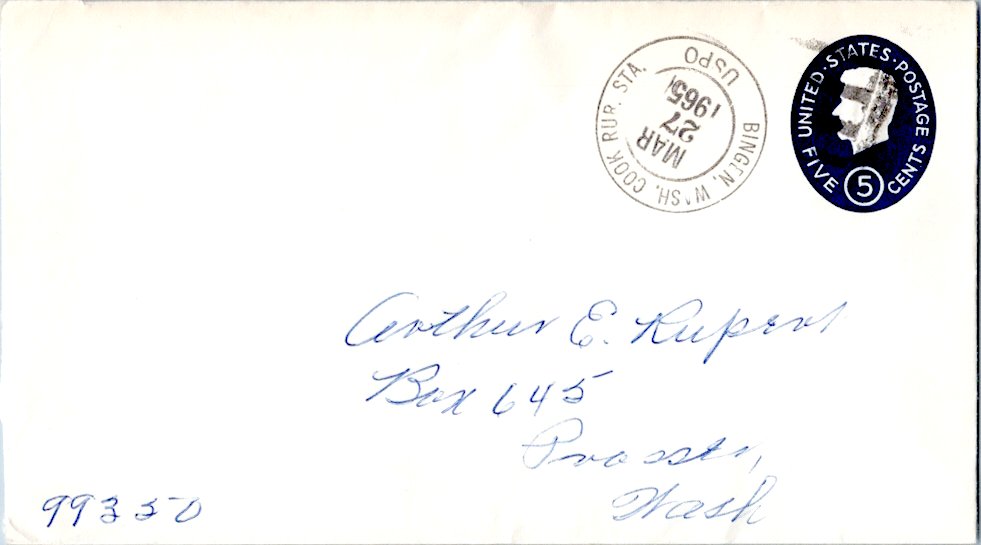 BINGEN, WASH. COOK RUR. STA.
USPO
MAR
27
1965
UNITED·STATES·POSTAGE
FIVE 5 CENTS
Arthur E. Rupert
Box 645
Prosser,
Wash
99350